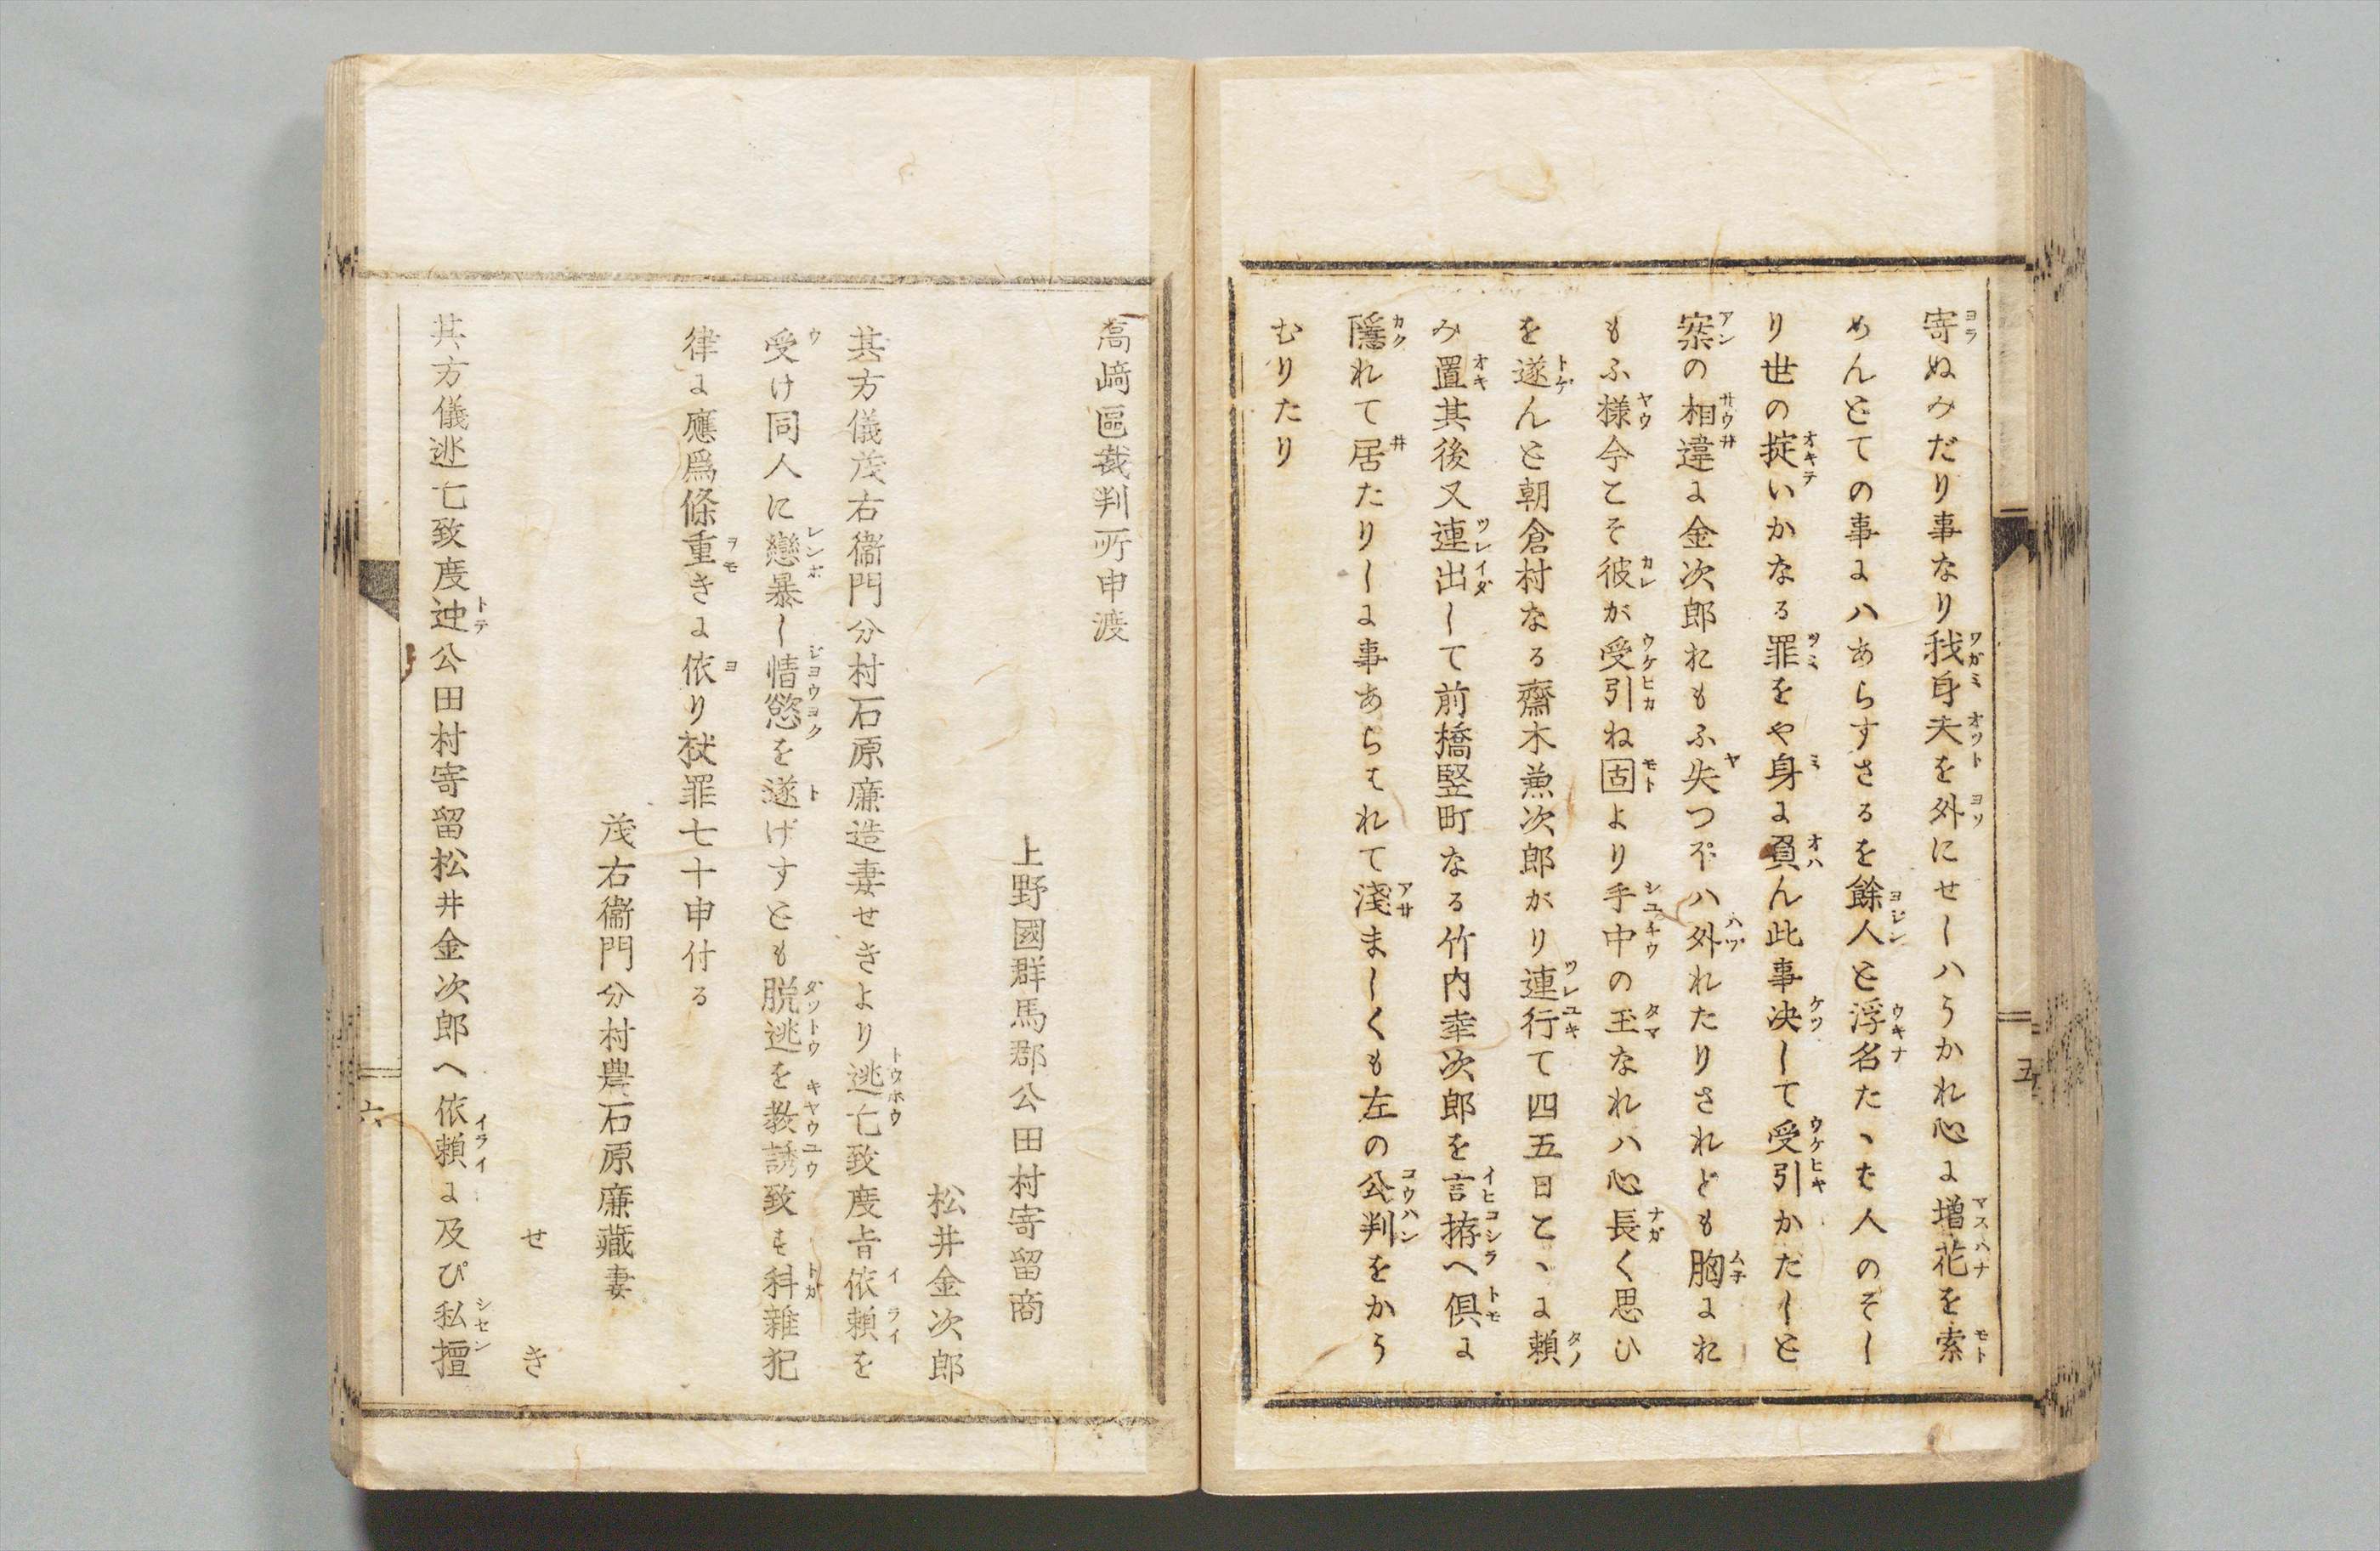 寄ぬみだり事なり我身夫を外にせしハうかれ心に増花を索
めんとての事にハあらすさるを餘人と浮名たゝせ人のそし
り世の掟いかなる罪をや身に負ん此事决して受引かたしと
案の相違に金次郎おもふ矢つボハ外れたりされども胸にお
もふ様今こそ彼が受引ね固より手中の玉なれハ心長く思ひ
を遂んと朝倉村なる齋木兼次郎がり連行て四五日こゝに頼
み置其後又連出して前橋竪町なる竹内幸次郎を言拵へ俱に
隱れて居たりしに事あらはれて淺ましくも左の公判をかう
むりたり
五
高﨑區裁判所申渡
上野國群馬郡公田村寄留商
松井金次郎
其方儀茂右衞門分村石原廉造妻せきより逃亡致度旨依頼を
受け同人に戀暴し情慾を遂げすとも脱逃を教誘致す科雜犯
律に應爲條重きに依り杖罪七十申付る
茂右衞門分村農石原廉藏妻
せき
其方儀逃亡致度迚公田村寄留松井金次郎へ依頼に及び私擅
六